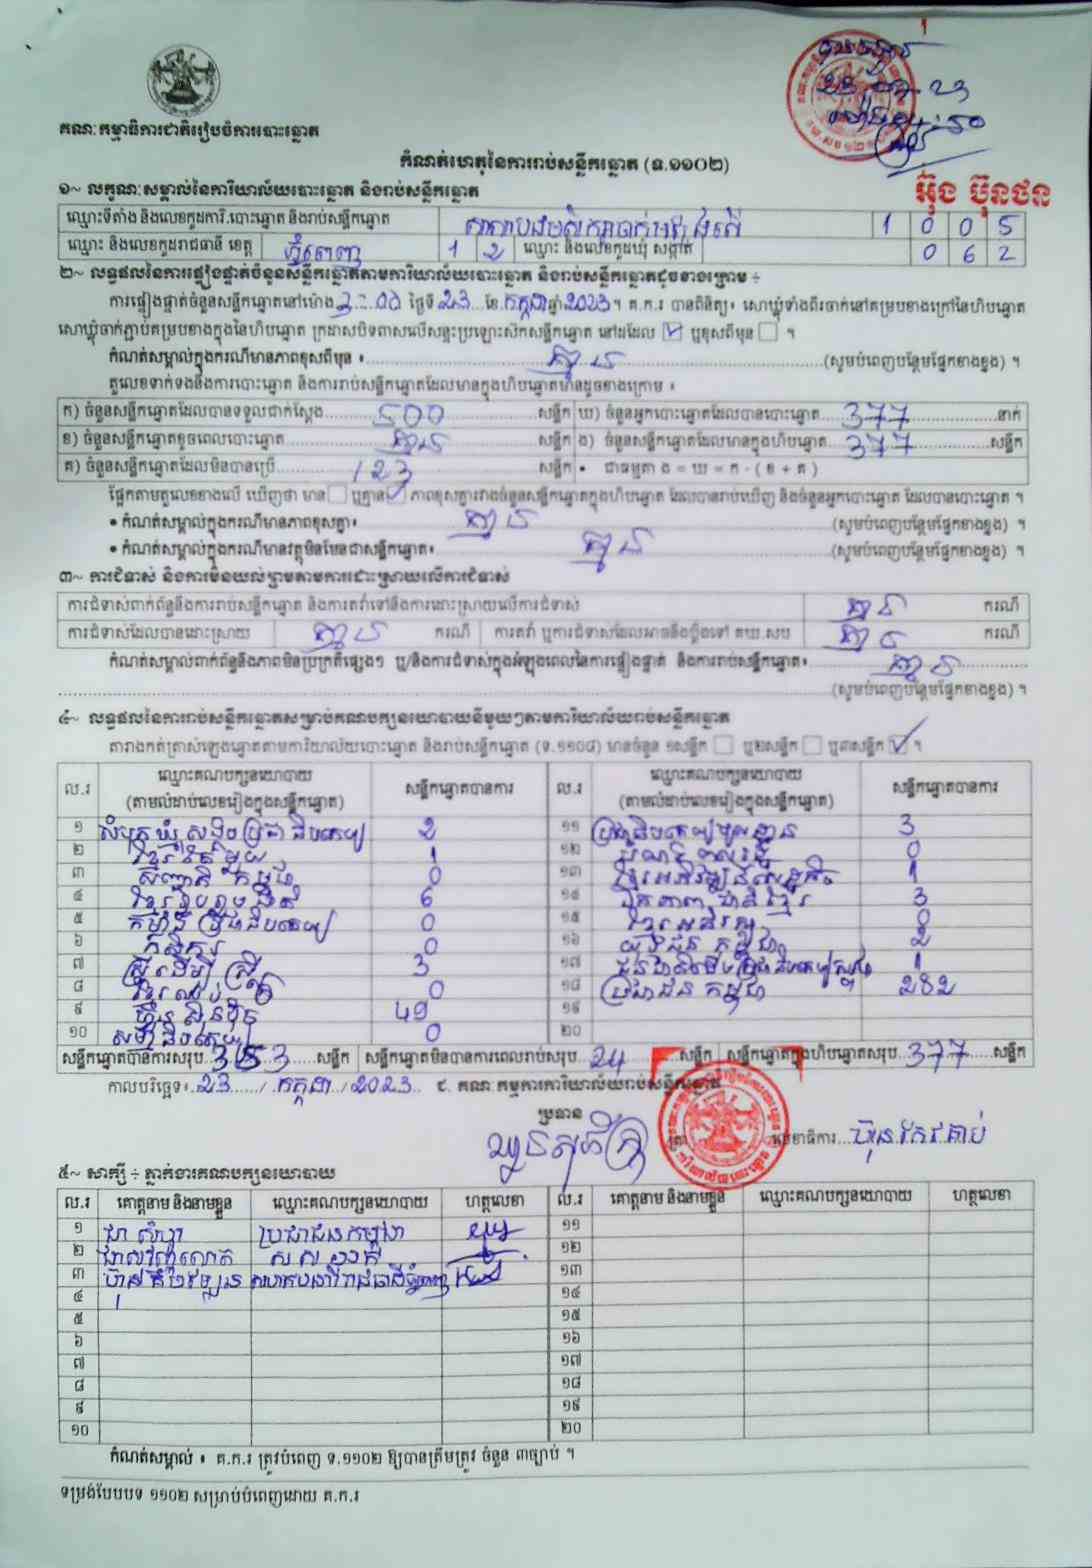 គណៈកម្មាធិការជាតិរៀបចំការបោះឆ្នោត
កំណត់ហេតុនៃការរាប់សន្លឹកឆ្នោត (ទ.១១០២)
អ៊ុច ប៊ុនថន
១~ លក្ខណៈសម្គាល់នៃការិយាល័យបោះឆ្នោត និងរាប់សន្លឹកឆ្នោត
ឈ្មោះទីតាំង និងលេខកូដការិ.បោះឆ្នោត និងរាប់សន្លឹកឆ្នោត 1 0 0 5
ឈ្មោះ និងលេខកូដរាជធានី ខេត្ត ភ្នំពេញ 1 2 ឈ្មោះ និងលេខកូដឃុំ សង្កាត់ 0 6 2
២~ លទ្ធផលនៃការផ្ទៀងផ្ទាត់ចំនួនសន្លឹកឆ្នោតតាមការិយាល័យបោះឆ្នោត និងរាប់សន្លឹកឆ្នោតដូចខាងក្រោម ÷
ការផ្ទៀងផ្ទាត់ចំនួនសន្លឹកឆ្នោតនៅម៉ោង 3:00 ថ្ងៃទី 23 ខែ កក្កដា ឆ្នាំ 2023 ។ គ.ក.រ បានពិនិត្យ៖ សោឃ្លុំទាំងពីរចាក់នៅគម្របខាងក្រៅនៃហិបឆ្នោត
សោឃ្លុំចាក់ភ្ជាប់គម្របខាងក្នុងនៃហិបឆ្នោត ក្រដាសបិទពាសលើសន្ទះប្រឡោះសិកសន្លឹកឆ្នោត នៅដដែល ☑ ឬខុសពីមុន ☐ ។
កំណត់សម្គាល់ក្នុងករណីមានភាពខុសពីមុន ៖ គ្មាន (សូមបំពេញបន្ថែមផ្នែកខាងខ្នង) ។
តួលេខទាក់ទងនឹងការបោះឆ្នោត និងការរាប់សន្លឹកឆ្នោតដែលមានក្នុងហិបឆ្នោតមានដូចខាងក្រោម ៖
ក) ចំនួនសន្លឹកឆ្នោតដែលបានទទួលជាក់ស្តែង 500 សន្លឹក ឃ) ចំនួនអ្នកបោះឆ្នោតដែលបានបោះឆ្នោត 377 នាក់
ខ) ចំនួនសន្លឹកឆ្នោតខូចពេលបោះឆ្នោត គ្មាន សន្លឹក ង) ចំនួនសន្លឹកឆ្នោតដែលមានក្នុងហិបឆ្នោត 377 សន្លឹក
គ) ចំនួនសន្លឹកឆ្នោតដែលមិនបានប្រើ 123 សន្លឹក • ជាធម្មតា ង = ឃ = ក - ( ខ + គ )
ផ្អែកតាមតួលេខខាងលើ ឃើញថា មាន ☐ ឬគ្មាន ☑ ភាពខុសគ្នារវាងចំនួនសន្លឹកឆ្នោតក្នុងហិបឆ្នោត ដែលបានរាប់ឃើញ និងចំនួនអ្នកបោះឆ្នោត ដែលបានបោះឆ្នោត ។
• កំណត់សម្គាល់ក្នុងករណីមានភាពខុសគ្នា៖ គ្មាន (សូមបំពេញបន្ថែមផ្នែកខាងខ្នង) ។
• កំណត់សម្គាល់ក្នុងករណីមានវត្ថុមិនមែនជាសន្លឹកឆ្នោត៖ គ្មាន (សូមបំពេញបន្ថែមផ្នែកខាងខ្នង) ។
៣~ ការជំទាស់ និងការមិនយល់ព្រមតាមការដោះស្រាយលើការជំទាស់
ការជំទាស់ពាក់ព័ន្ធនឹងការរាប់សន្លឹកឆ្នោត និងការតវ៉ាទៅនឹងការដោះស្រាយលើការជំទាស់ គ្មាន ករណី
ការជំទាស់ដែលបានដោះស្រាយ គ្មាន ករណី ការតវ៉ា ឬការជំទាស់ដែលអាចនឹងប្តឹងទៅ គឃ.សប គ្មាន ករណី
កំណត់សម្គាល់ពាក់ព័ន្ធនឹងភាពមិនប្រក្រតីផ្សេងៗ ឬ/និងការជំទាស់ក្នុងអំឡុងពេលនៃការផ្ទៀងផ្ទាត់ និងការរាប់សន្លឹកឆ្នោត៖ គ្មាន
(សូមបំពេញបន្ថែមផ្នែកខាងខ្នង) ។
៤~ លទ្ធផលនៃការរាប់សន្លឹកឆ្នោតសម្រាប់គណបក្សនយោបាយនីមួយៗតាមការិយាល័យរាប់សន្លឹកឆ្នោត
តារាងកត់ត្រាសំឡេងឆ្នោតតាមការិយាល័យបោះឆ្នោត និងរាប់សន្លឹកឆ្នោត (ទ.១១០៨) មានចំនួន ១សន្លឹក ☐ ឬ២សន្លឹក ☐ ឬ៣សន្លឹក ☑ ។
ល.រ ឈ្មោះគណបក្សនយោបាយ (តាមលំដាប់លេខរៀងក្នុងសន្លឹកឆ្នោត) សន្លឹកឆ្នោតបានការ ល.រ ឈ្មោះគណបក្សនយោបាយ (តាមលំដាប់លេខរៀងក្នុងសន្លឹកឆ្នោត) សន្លឹកឆ្នោតបានការ
១ សំបុកឃ្មុំសង្គមប្រជាធិបតេយ្យ 2 ១១ ប្រជាធិបតេយ្យមូលដ្ឋាន 3
២ ខ្មែររួបរួម 1 ១២ 0
៣ សញ្ជាតិកម្ពុជា 0 ១៣ ខ្មែរអភិវឌ្ឍន៍សេដ្ឋកិច្ច 1
៤ ខ្មែររួបរួមជាតិ 6 ១៤ ឯកភាពជាតិខ្មែរ 3
៥ កម្លាំងប្រជាធិបតេយ្យ 0 ១៥ ខ្មែរអភិរក្ស 0
៦ កសិករ 0 ១៦ យុវជនកម្ពុជា 2
៧ ស្ត្រីដើម្បីស្ត្រី 3 ១៧ 1
៨ ខ្មែរឈប់ក្រ 0 ១៨ ប្រជាជនកម្ពុជា 282
៩ ហ៊្វុនស៊ិនប៉ិច 49 ១៩
១០ សមាធិបតេយ្យ 0 ២០
សន្លឹកឆ្នោតបានការសរុប 353 សន្លឹក សន្លឹកឆ្នោតមិនបានការពេលរាប់សរុប 24 សន្លឹក សន្លឹកឆ្នោតក្នុងហិបឆ្នោតសរុប 377 សន្លឹក
កាលបរិច្ឆេទ៖ 23 / កក្កដា / 2023 ជ. គណៈកម្មការការិយាល័យរាប់សន្លឹកឆ្នោត
ប្រធាន
លេខាធិការ
៥~ សាក្សី ÷ ភ្នាក់ងារគណបក្សនយោបាយ
ល.រ គោត្តនាម និងនាមខ្លួន ឈ្មោះគណបក្សនយោបាយ ហត្ថលេខា ល.រ គោត្តនាម និងនាមខ្លួន ឈ្មោះគណបក្សនយោបាយ ហត្ថលេខា
១ ប្រជាជនកម្ពុជា ១១
២ ១២
៣ ១៣
៤ ១៤
៥ ១៥
៦ ១៦
៧ ១៧
៨ ១៨
៩ ១៩
១០ ២០
កំណត់សម្គាល់ ៖ គ.ក.រ ត្រូវបំពេញ ទ.១១០២ ឱ្យបានត្រឹមត្រូវ ចំនួន ៣ច្បាប់ ។
ទម្រង់បែបបទ ១១០២ សម្រាប់បំពេញដោយ គ.ក.រ